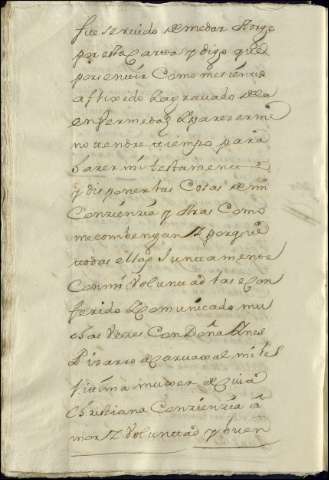 fue servido de me dar Otorgo
por esta carta y digo que
por sentir Como me siento
aflixido Y agravado de la
enfermedad Y parezerme
no tendre tiempo para
hazer mi testamento
y disponer las Cosas de mi
Conzienzia y otras Como
me combengan Y porque
todas ellas Juntamente
Con mi Voluntad las e con
ferido Y Comunicado mu
chas Vezes Con Doña Ynes
Pizarro de Carvajal mi lex
itima muger de cuia
christiana Conzienzia a
mor Y Voluntad y buen